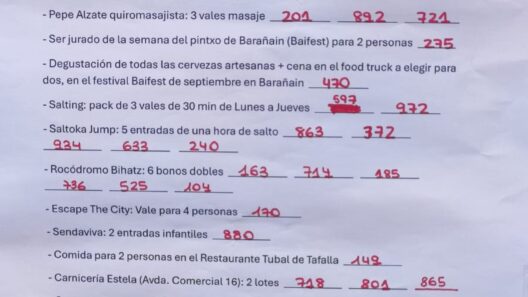 - Pepe Alzate quiromasajista: 3 vales masaje 201 892 721
- Ser jurado de la semana del pintxo de Barañain (Baifest) para 2 personas 275
- Degustación de todas las cervezas artesanas + cena en el food truck a elegir para
dos, en el festival Baifest de septiembre en Barañain 470
- Salting: pack de 3 vales de 30 min de Lunes a Jueves 597 972
- Saltoka Jump: 5 entradas de una hora de salto 863 372
934 633 240
- Rocódromo Bihatz: 6 bonos dobles 163 714 185
736 525 104
- Escape The City: Vale para 4 personas 170
- Sendaviva: 2 entradas infantiles 880
- Comida para 2 personas en el Restaurante Tubal de Tafalla 149
- Carnicería Estela (Avda. Comercial 16): 2 lotes 718 801 865